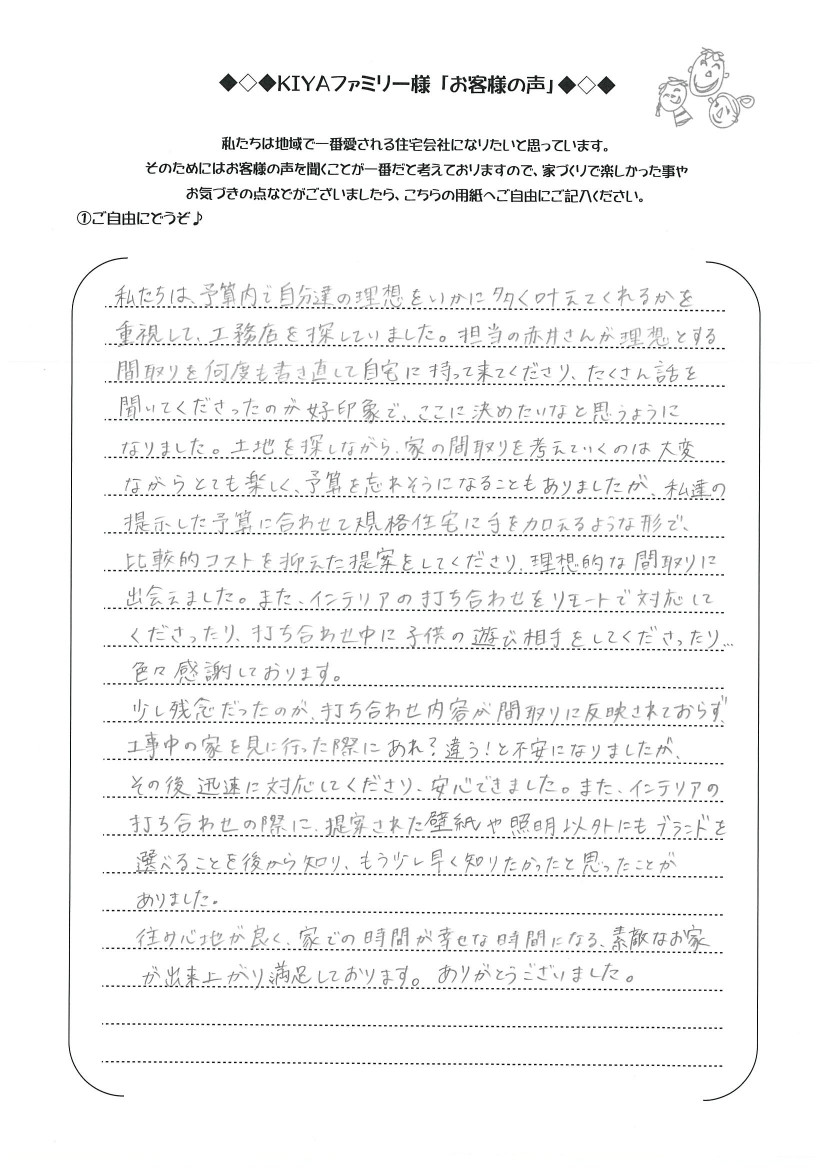 ◆◇◆KIYAファミリー様「お客様の声」◆◇◆
私たちは地域で一番愛される住宅会社になりたいと思っています。
そのためにはお客様の声を聞くことが一番だと考えておりますので、家づくりで楽しかった事や
お気づきの点などがございましたら、こちらの用紙へご自由にご記入ください。
①ご自由にどうぞ♪
私たちは、予算内で自分達の理想をいかに多く叶えてくれるかを
重視して、工務店を探していました。担当の赤井さんが理想とする
間取りを何度も書き直して自宅に持って来てくださり、たくさん話を
聞いてくださったのが好印象で、ここに決めたいなと思うように
なりました。土地を探しながら、家の間取りを考えていくのは大変
ながらとても楽しく、予算を忘れそうになることもありましたが、私達の
提示した予算に合わせて規格住宅に手を加えるような形で、
比較的コストを抑えた提案をしてくださり、理想的な間取りに
出会えました。また、インテリアの打ち合わせをリモートで対応して
くださったり、打ち合わせ中に子供の遊び相手をしてくださったり…
色々感謝しております。
少し残念だったのが、打ち合わせ内容が間取りに反映されておらず、
工事中の家を見に行った際にあれ?違う!と不安になりましたが、
その後迅速に対応してくださり、安心できました。また、インテリアの
打ち合わせの際に、提案された壁紙や照明以外にもブランドを
選べることを後から知り、もう少し早く知りたかったと思ったことが
ありました。
住み心地が良く、家での時間が幸せな時間になる、素敵なお家
が出来上がり満足しております。ありがとうございました。